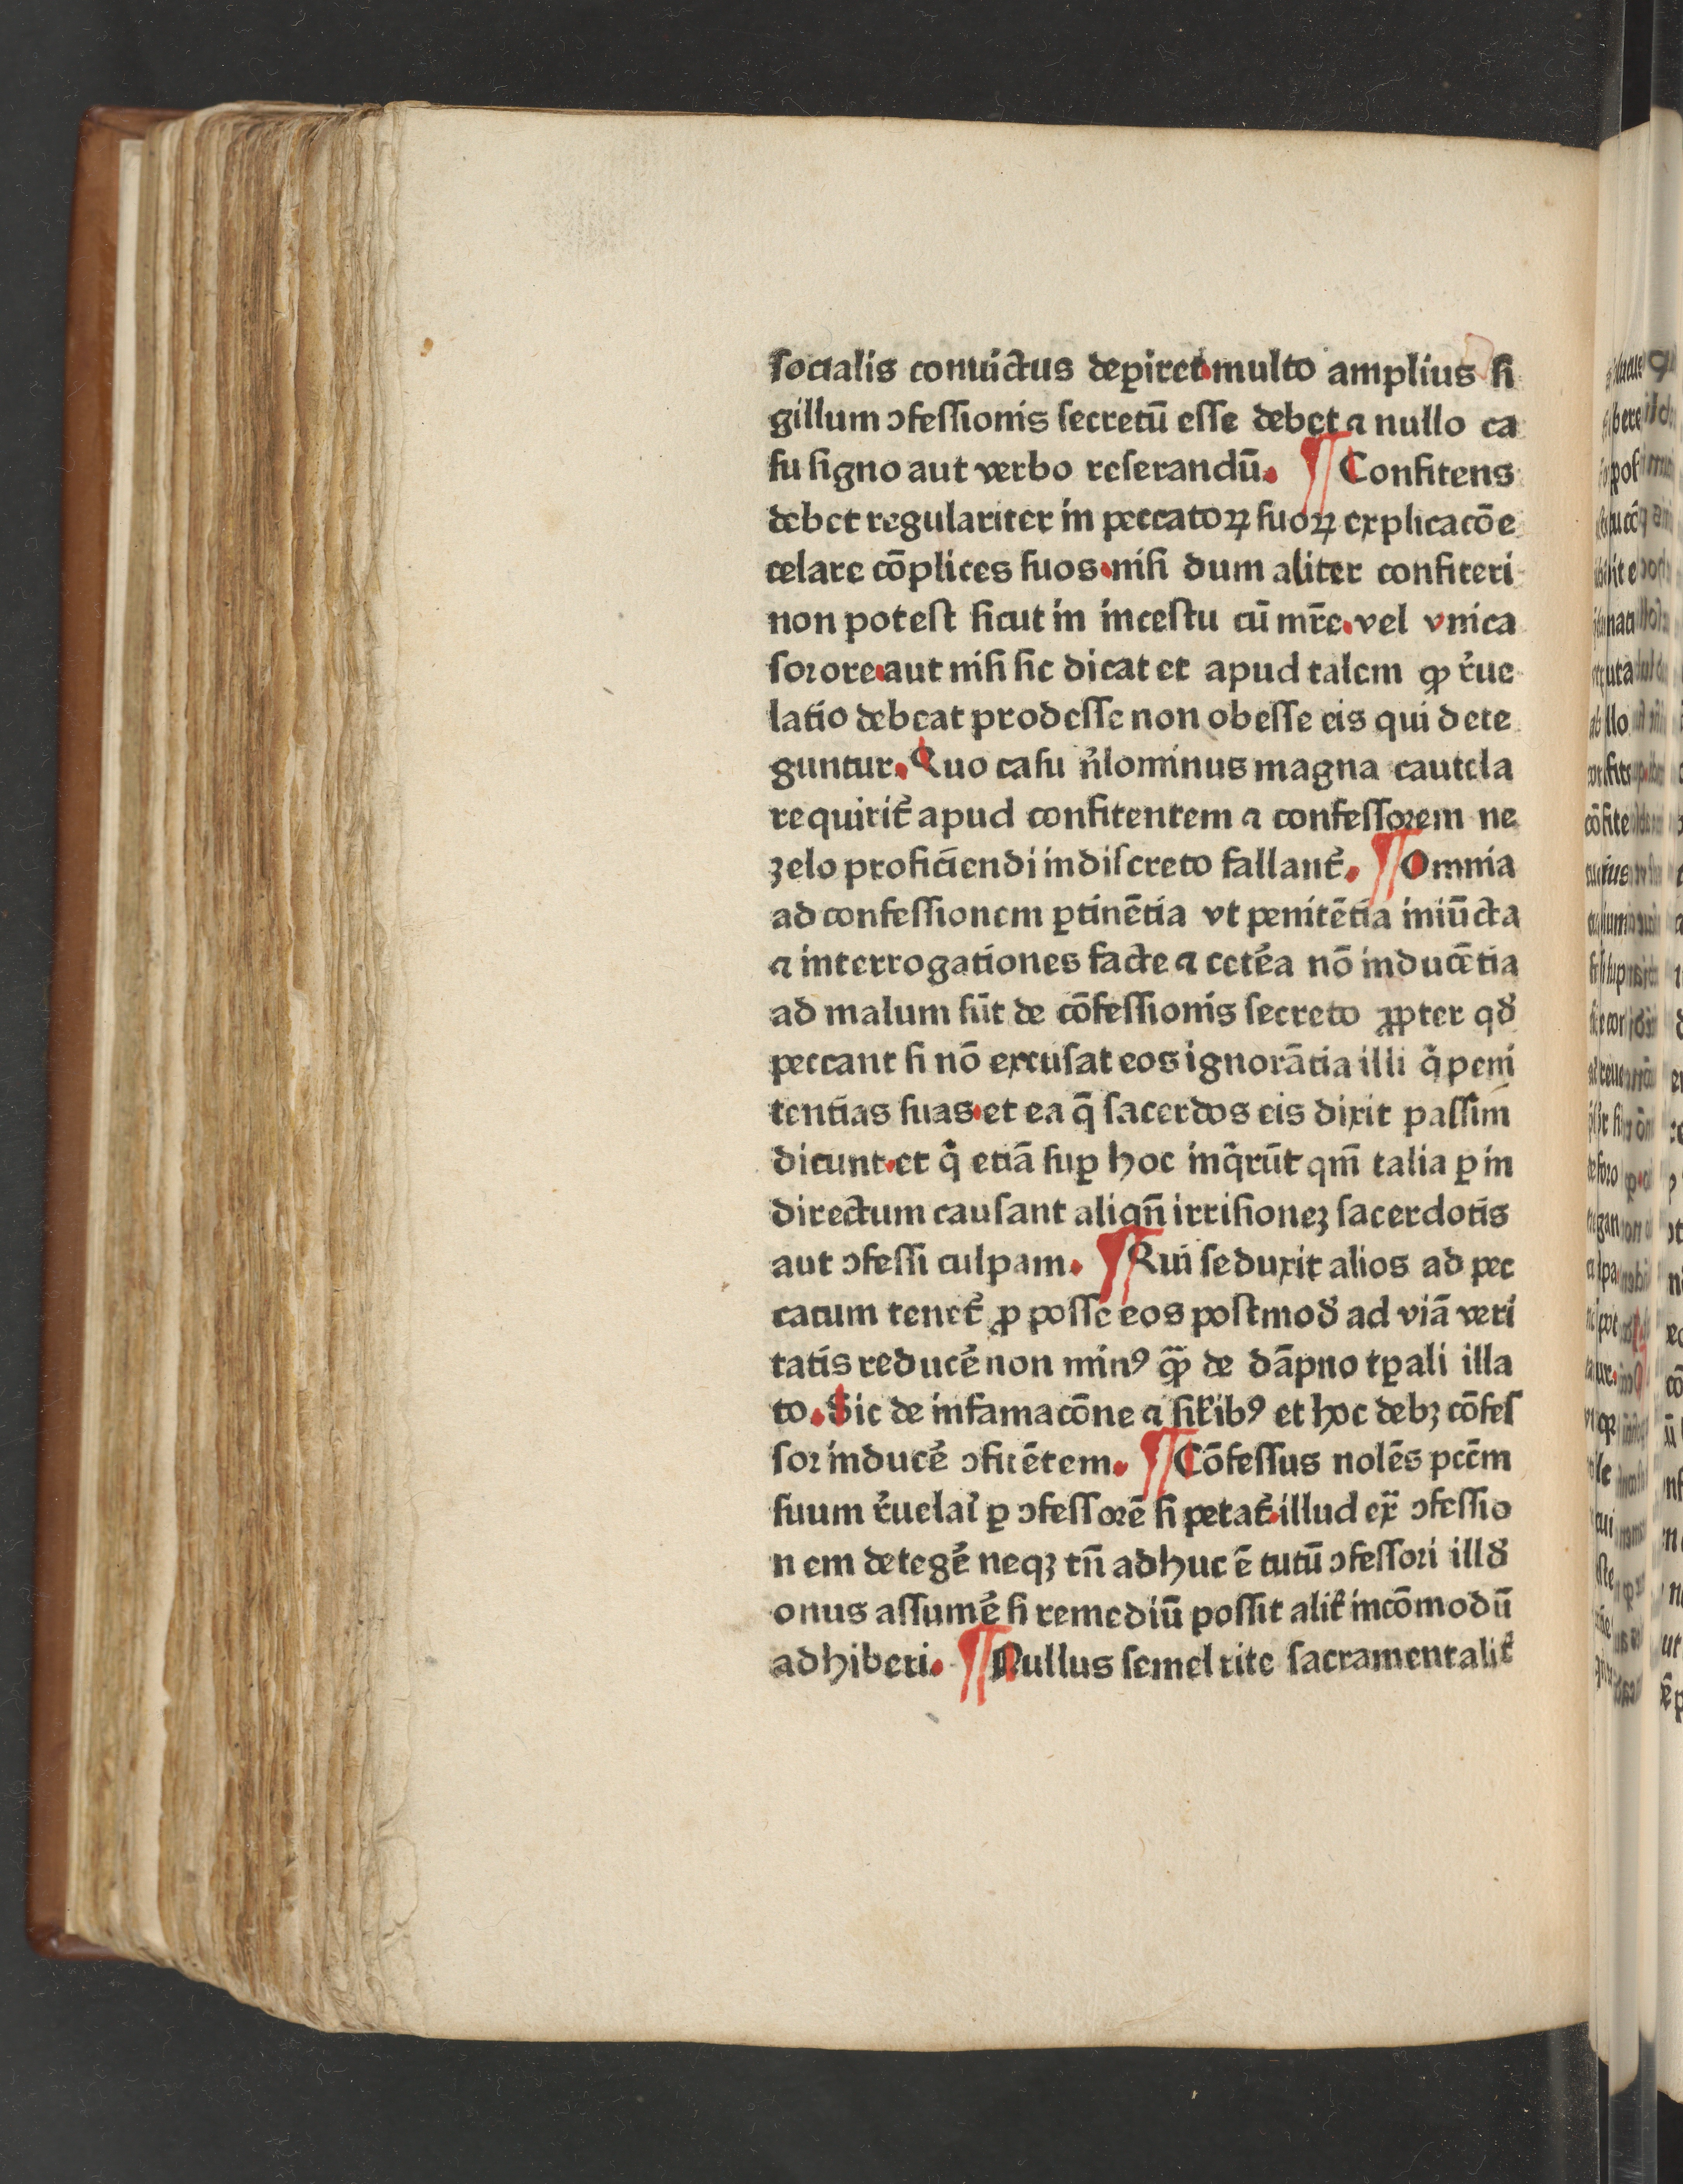 socialis conuictus deꝑiret multo amplius si
gillum ↄfessionis secretū esse debet ⁊ nullo ca
su signo aut verbo reserandū. ¶ Confitens
debet regulariter in peccatoꝝ suoꝝ explicacōe
celare cōplices suos. nisi dum aliter confiteri
non potest sicut in incestu cū mr̄e. vel vnica
sorore. aut nisi sic dicat et apud talem ꝙ r̓ue
latio debeat prodesse non obesse eis qui dete
guntur. Quo casu n̓lominus magna cautela
requirit̓ apud confitentem ⁊ confessorem ne
zelo proficiendi indiscreto fallant̓. ¶ Omnia
ad confessionem ꝑtinētia vt penitētia iniūcta
⁊ interrogationes facte ⁊ cetēa nō inducētia
ad malum sūt de cōfessionis secreto ꝓpter qd̓
peccant si nō excusat eos ignorātia illi q̓ peni
tentias suas. et ea q̄ sacerdos eis dixit passim
dicunt. et q̓ etiā suꝑ hoc inq̄rūt qm̄ talia ꝑ in
directum causant aliqn̄ irrisionez sacerdotis
aut ↄfessi culpam. ¶ Qui seduxit alios ad pec
catum tenet̓ ꝓ posse eos postmod̓ ad viā veri
tatis reducē non minꝰ ꝙ̄ de dāpno tꝑali illa
to. Sic de infamacōne ⁊ sil̓ibꝰ et hoc debꝫ cōfes
sor inducē ↄfitētem. ¶ Cōfessus nolēs pccm̄
suum r̓uelar̓ ꝑ ↄfessorē si petat̓. illud ex̄ ↄfessio
nem detegē neqꝫ tn̄ adhuc ē tutū ↄfessori illd̓
onus assumē si remediū possit alit̓ incōmodū
adhiberi. ¶ Nullus semel rite sacramentalit̓